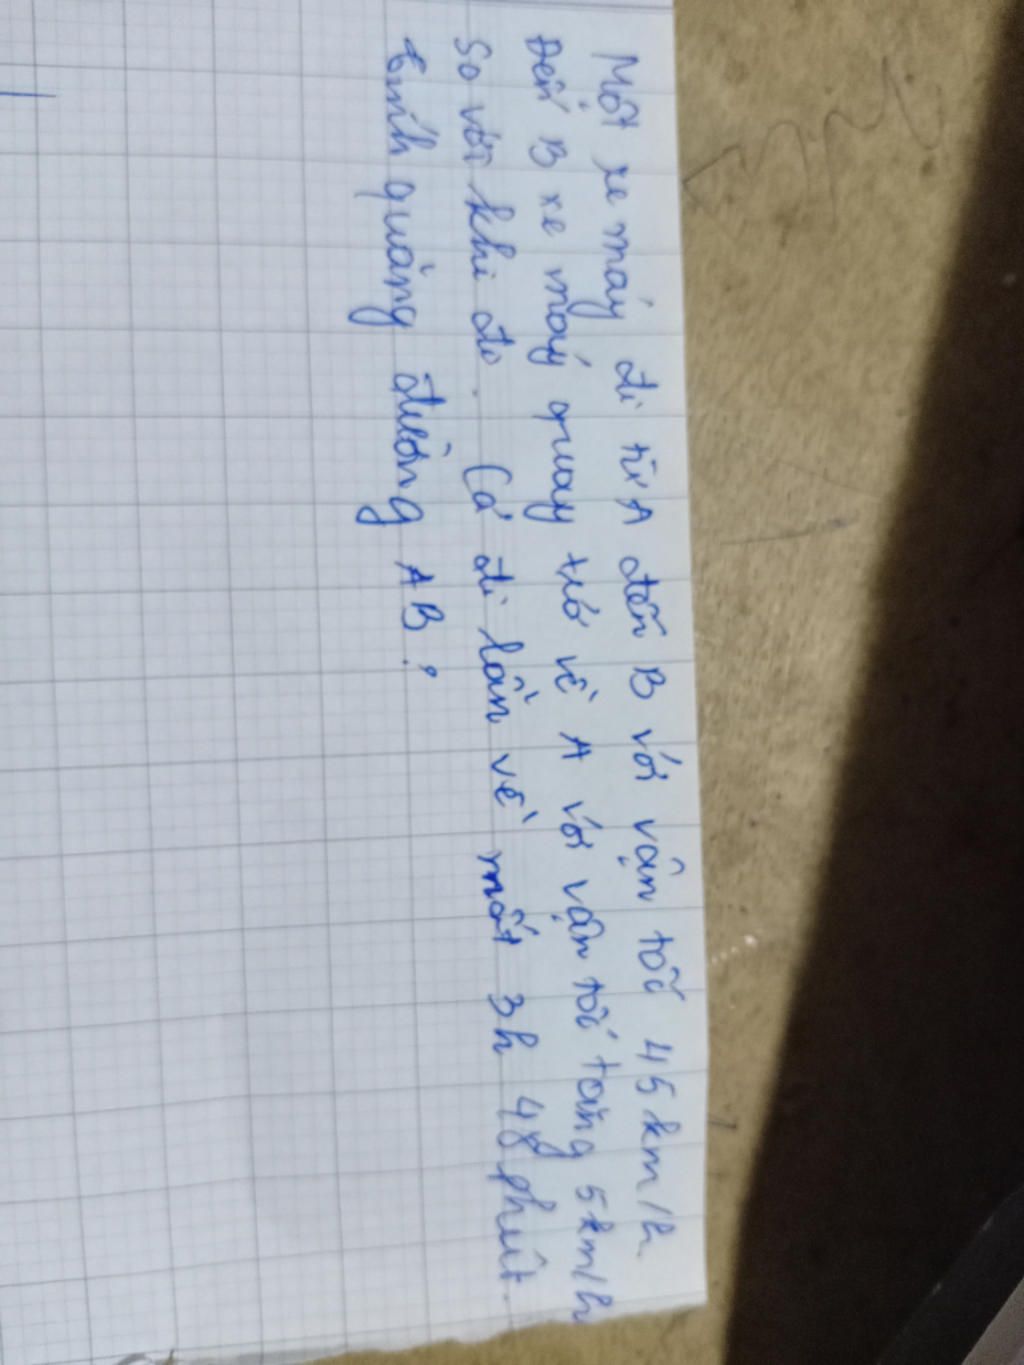 Một xe máy đi từ A đến B với vận tốc 45km/h.
Đến B xe máy quay trở về A với vận tốc tăng 5km/h
So với khi đi. Cả đi lẫn về mất 3h 48 phút.
tính quãng đường AB?